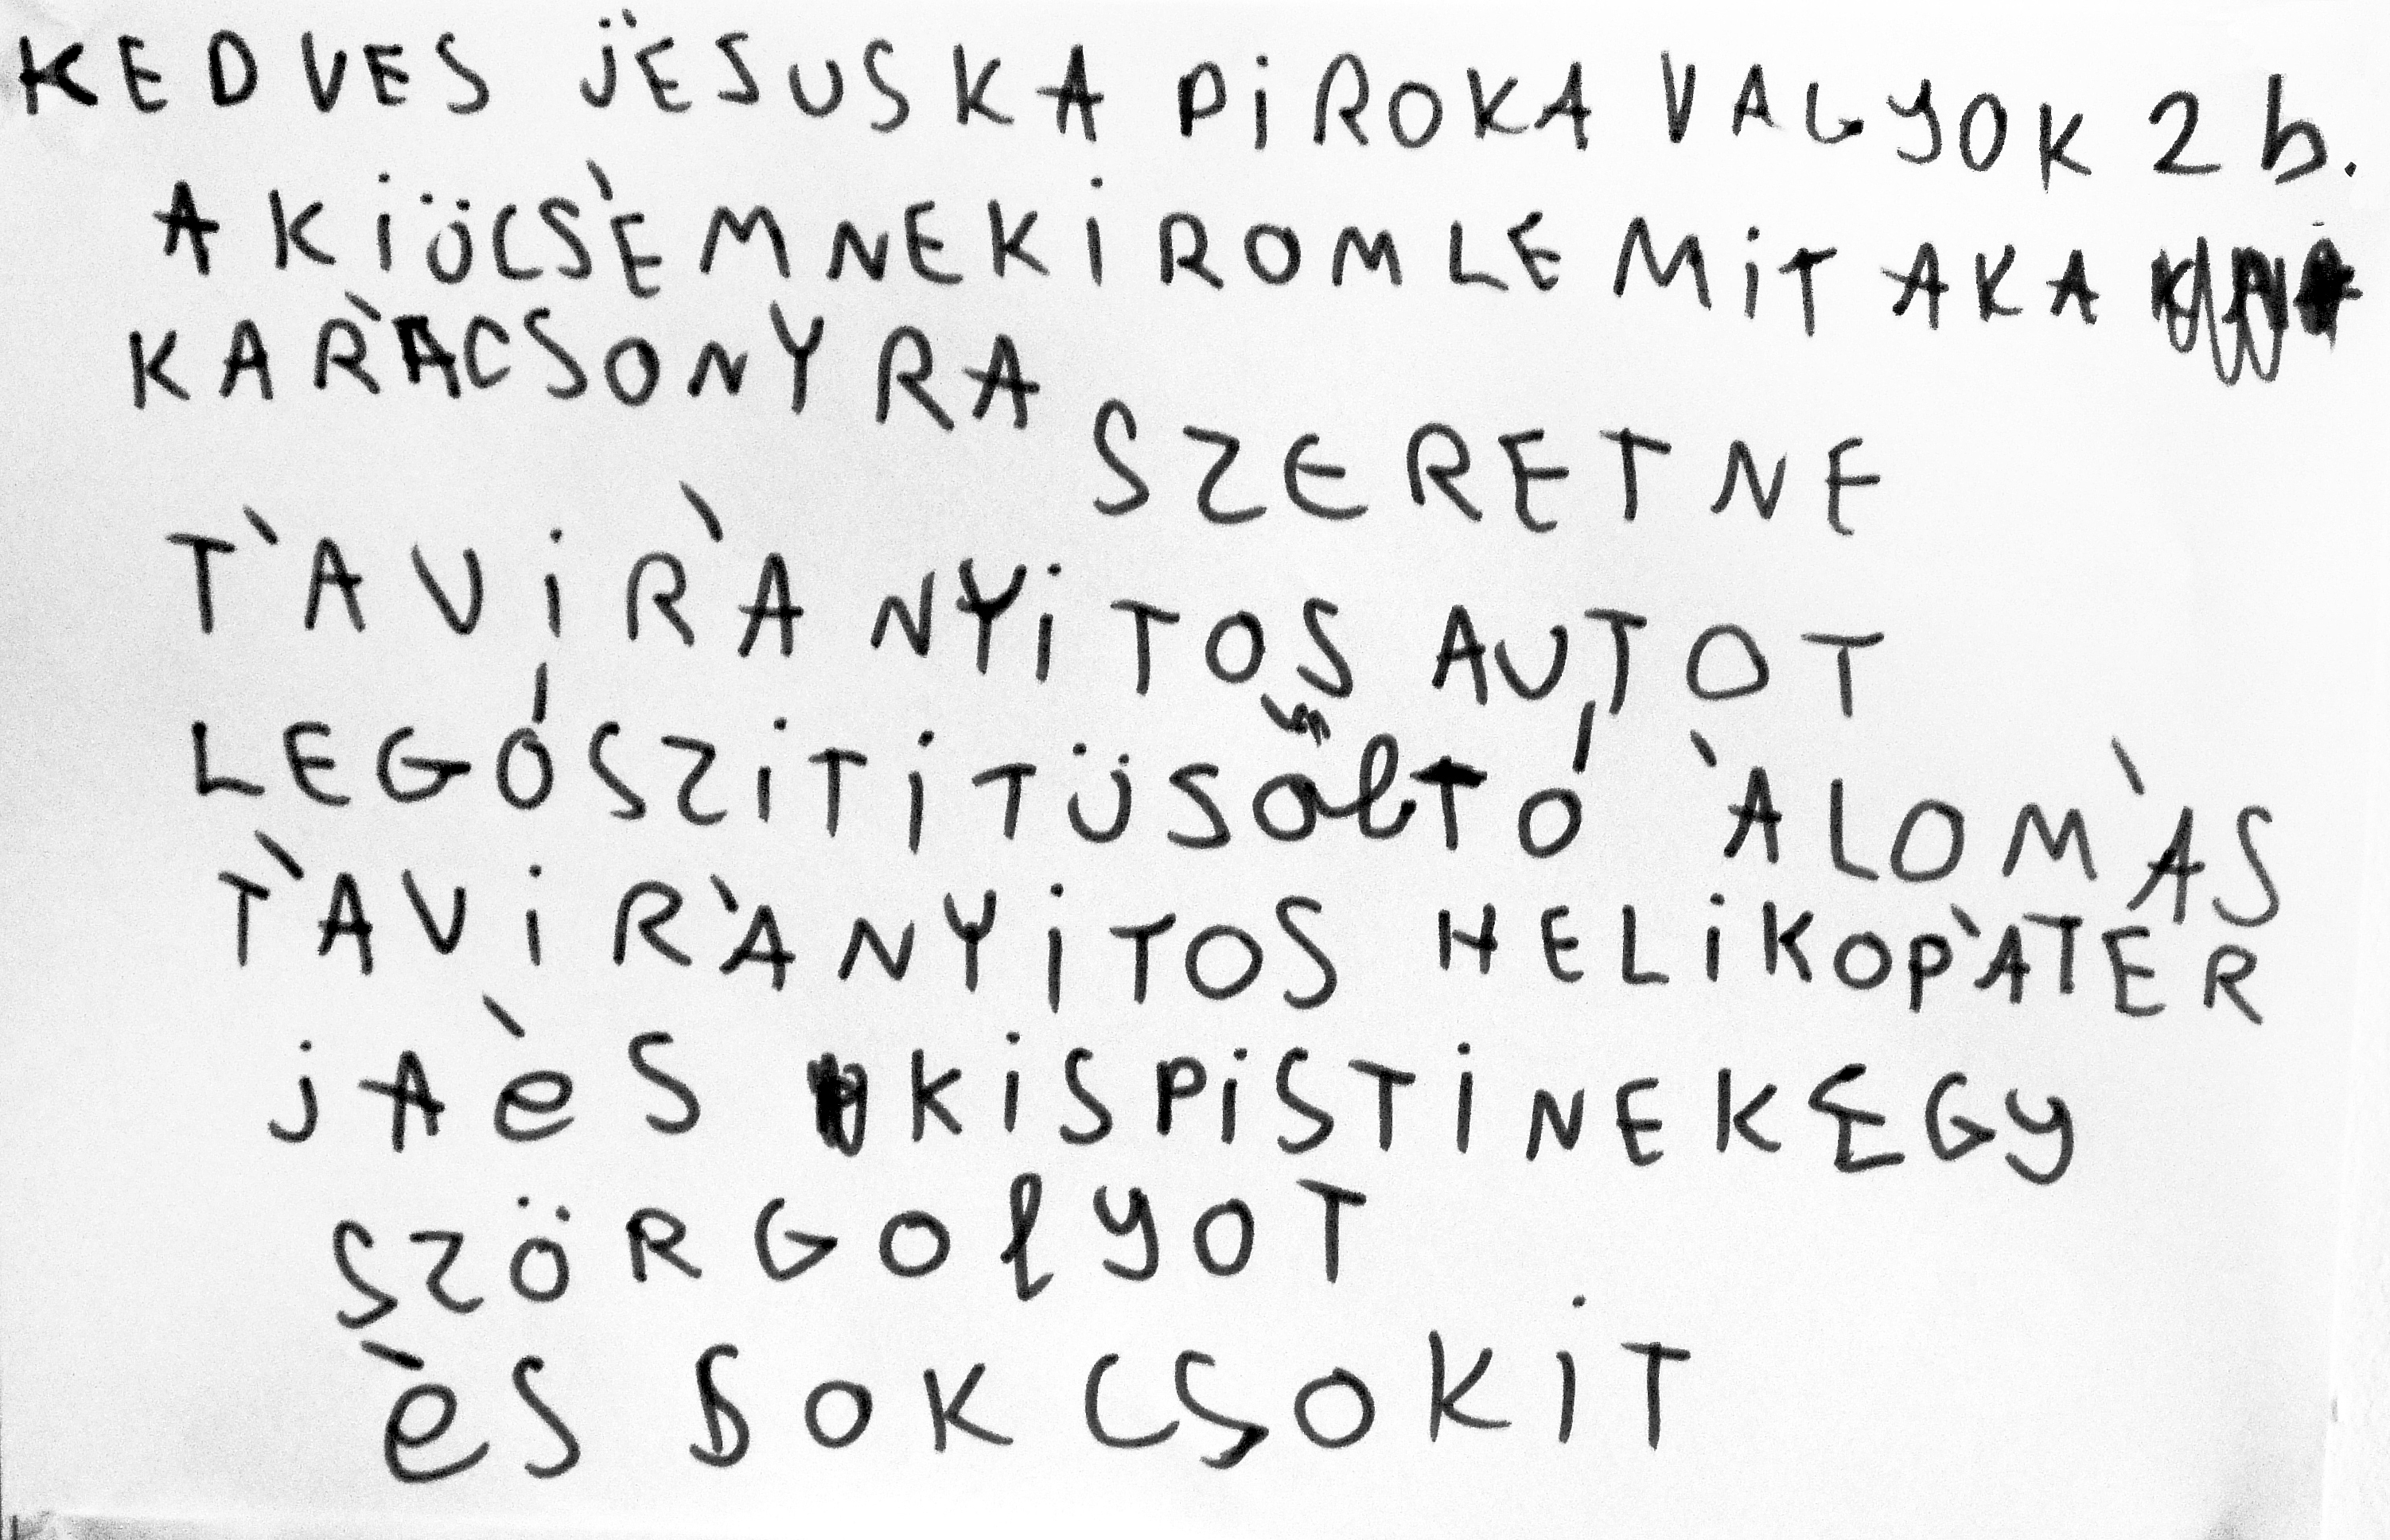 KEDVES JËSUSKA PiROKA VAGYOK 2 b.
A KiÖCSÈMNEKiROMLE MiT AKA
KARÀCSONYRA
SZERETNE
TÀViRÀNYiTOS AUTOT
LEGÓSZiTiTÜSŐlTÓ ÀLOMÀS
TÀViRÀNYiTOS HELiKOPÀTER
jAèS KiSPiSTiNEKEGY
SZÖRGOlyOT
èS SOK CSOKiT